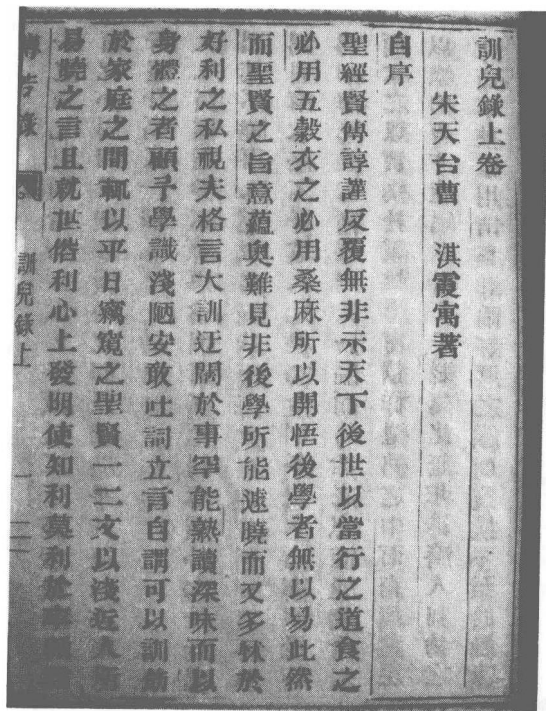 訓兒錄上卷
朱天台曹 淇霞寓著
自序
聖經賢傳諄謹反覆無非示天下後世以當行之道食之
必用五穀衣之必用桑麻所以開悟後學者無以易此然
而聖賢之旨意蘊奧難見非後學所能遽曉而又多怵於
好利之私視夫格言大訓迂闊於事罕能熟讀深味而以
身體之者顧予學識淺陋安敢吐詞立言自謂可以訓飭
於家庭之間輒以平日窺寬之聖賢一二文以淺近人
易曉之言且就世俗利心上發明使知利莫利於
錄
訓兒錄上
一